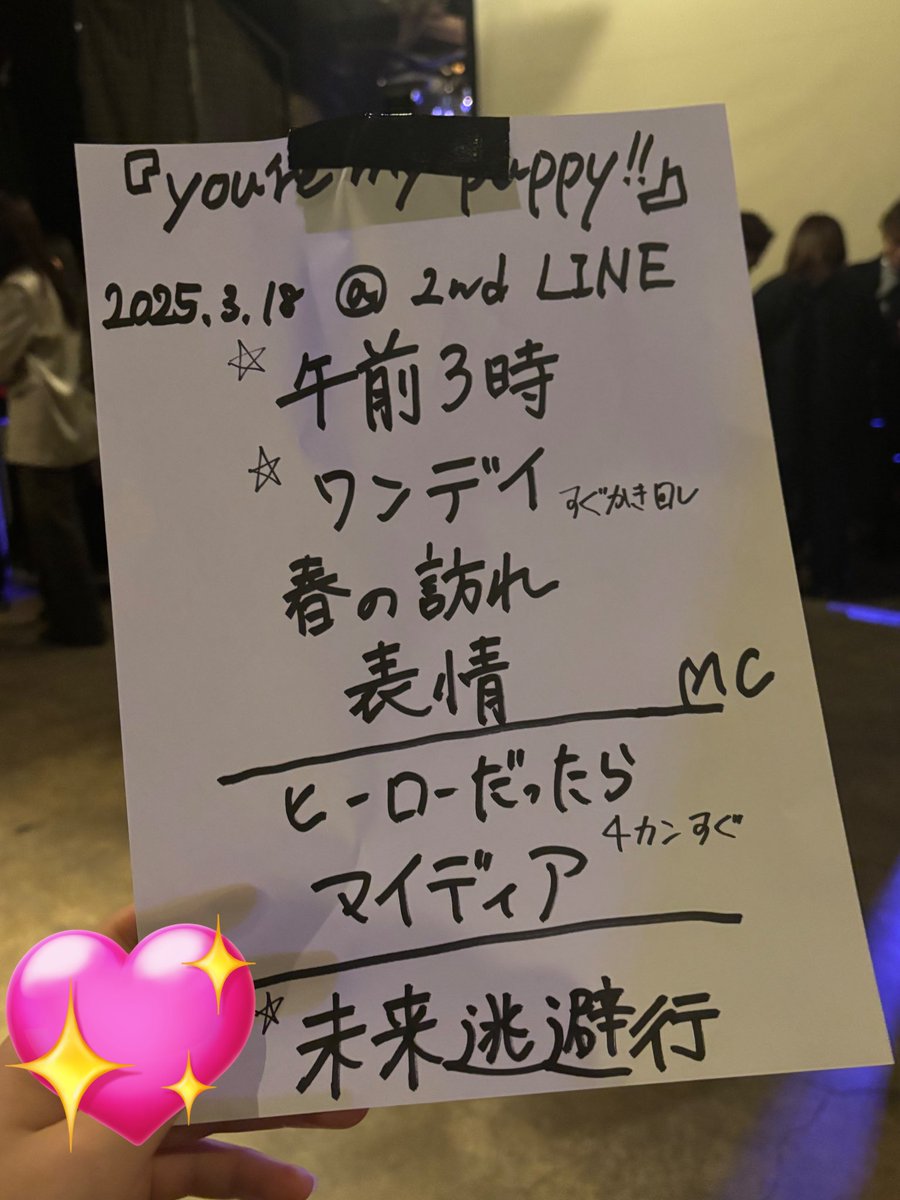 『you're my puppy!!』
2025.3.18 @ 2nd LINE
☆ 午前3時
☆ ワンデイ すぐかき回し
春の訪れ
表情 MC
ヒーローだったら
マイディア 4カンすぐ
☆ 未来逃避行